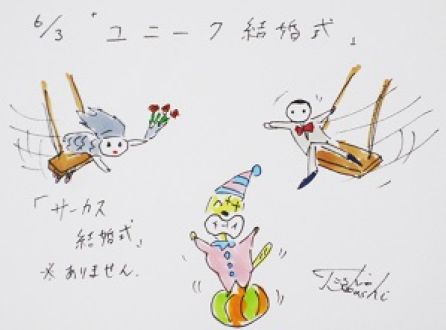 6/3 「ユニーク結婚式」
「サーカス
結婚式」
※ありません.